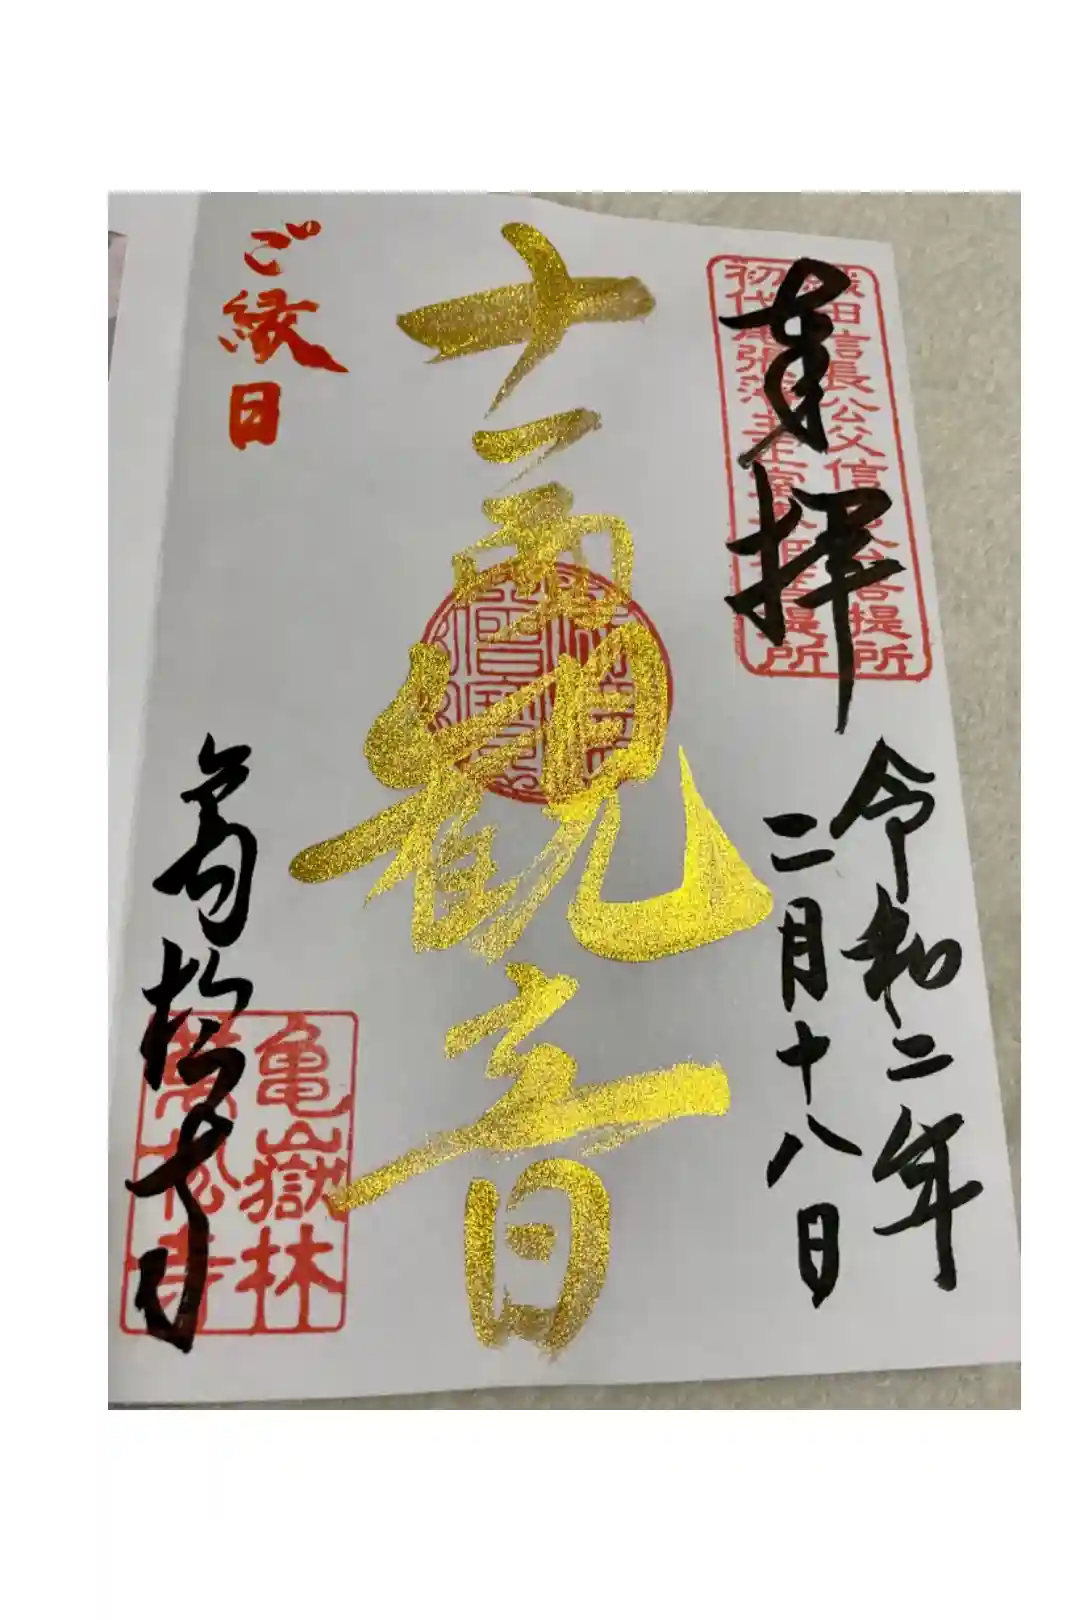 奉拝
令和二年
二月十八日
織田信長公父信秀公菩提所
初代尾張藩主正室春姫菩提所
十一面観音
ご縁日
萬松寺
亀嶽林
萬松寺